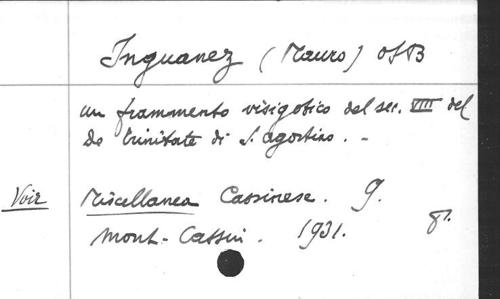 Inguanez (Mauro) OSB
un frammento visigotico del sec. VIII del
De Trinitate di S. Agostino. -
Voir Miscellanea Cassinese. 9.
Mont-Cassin. 1931. 8°.